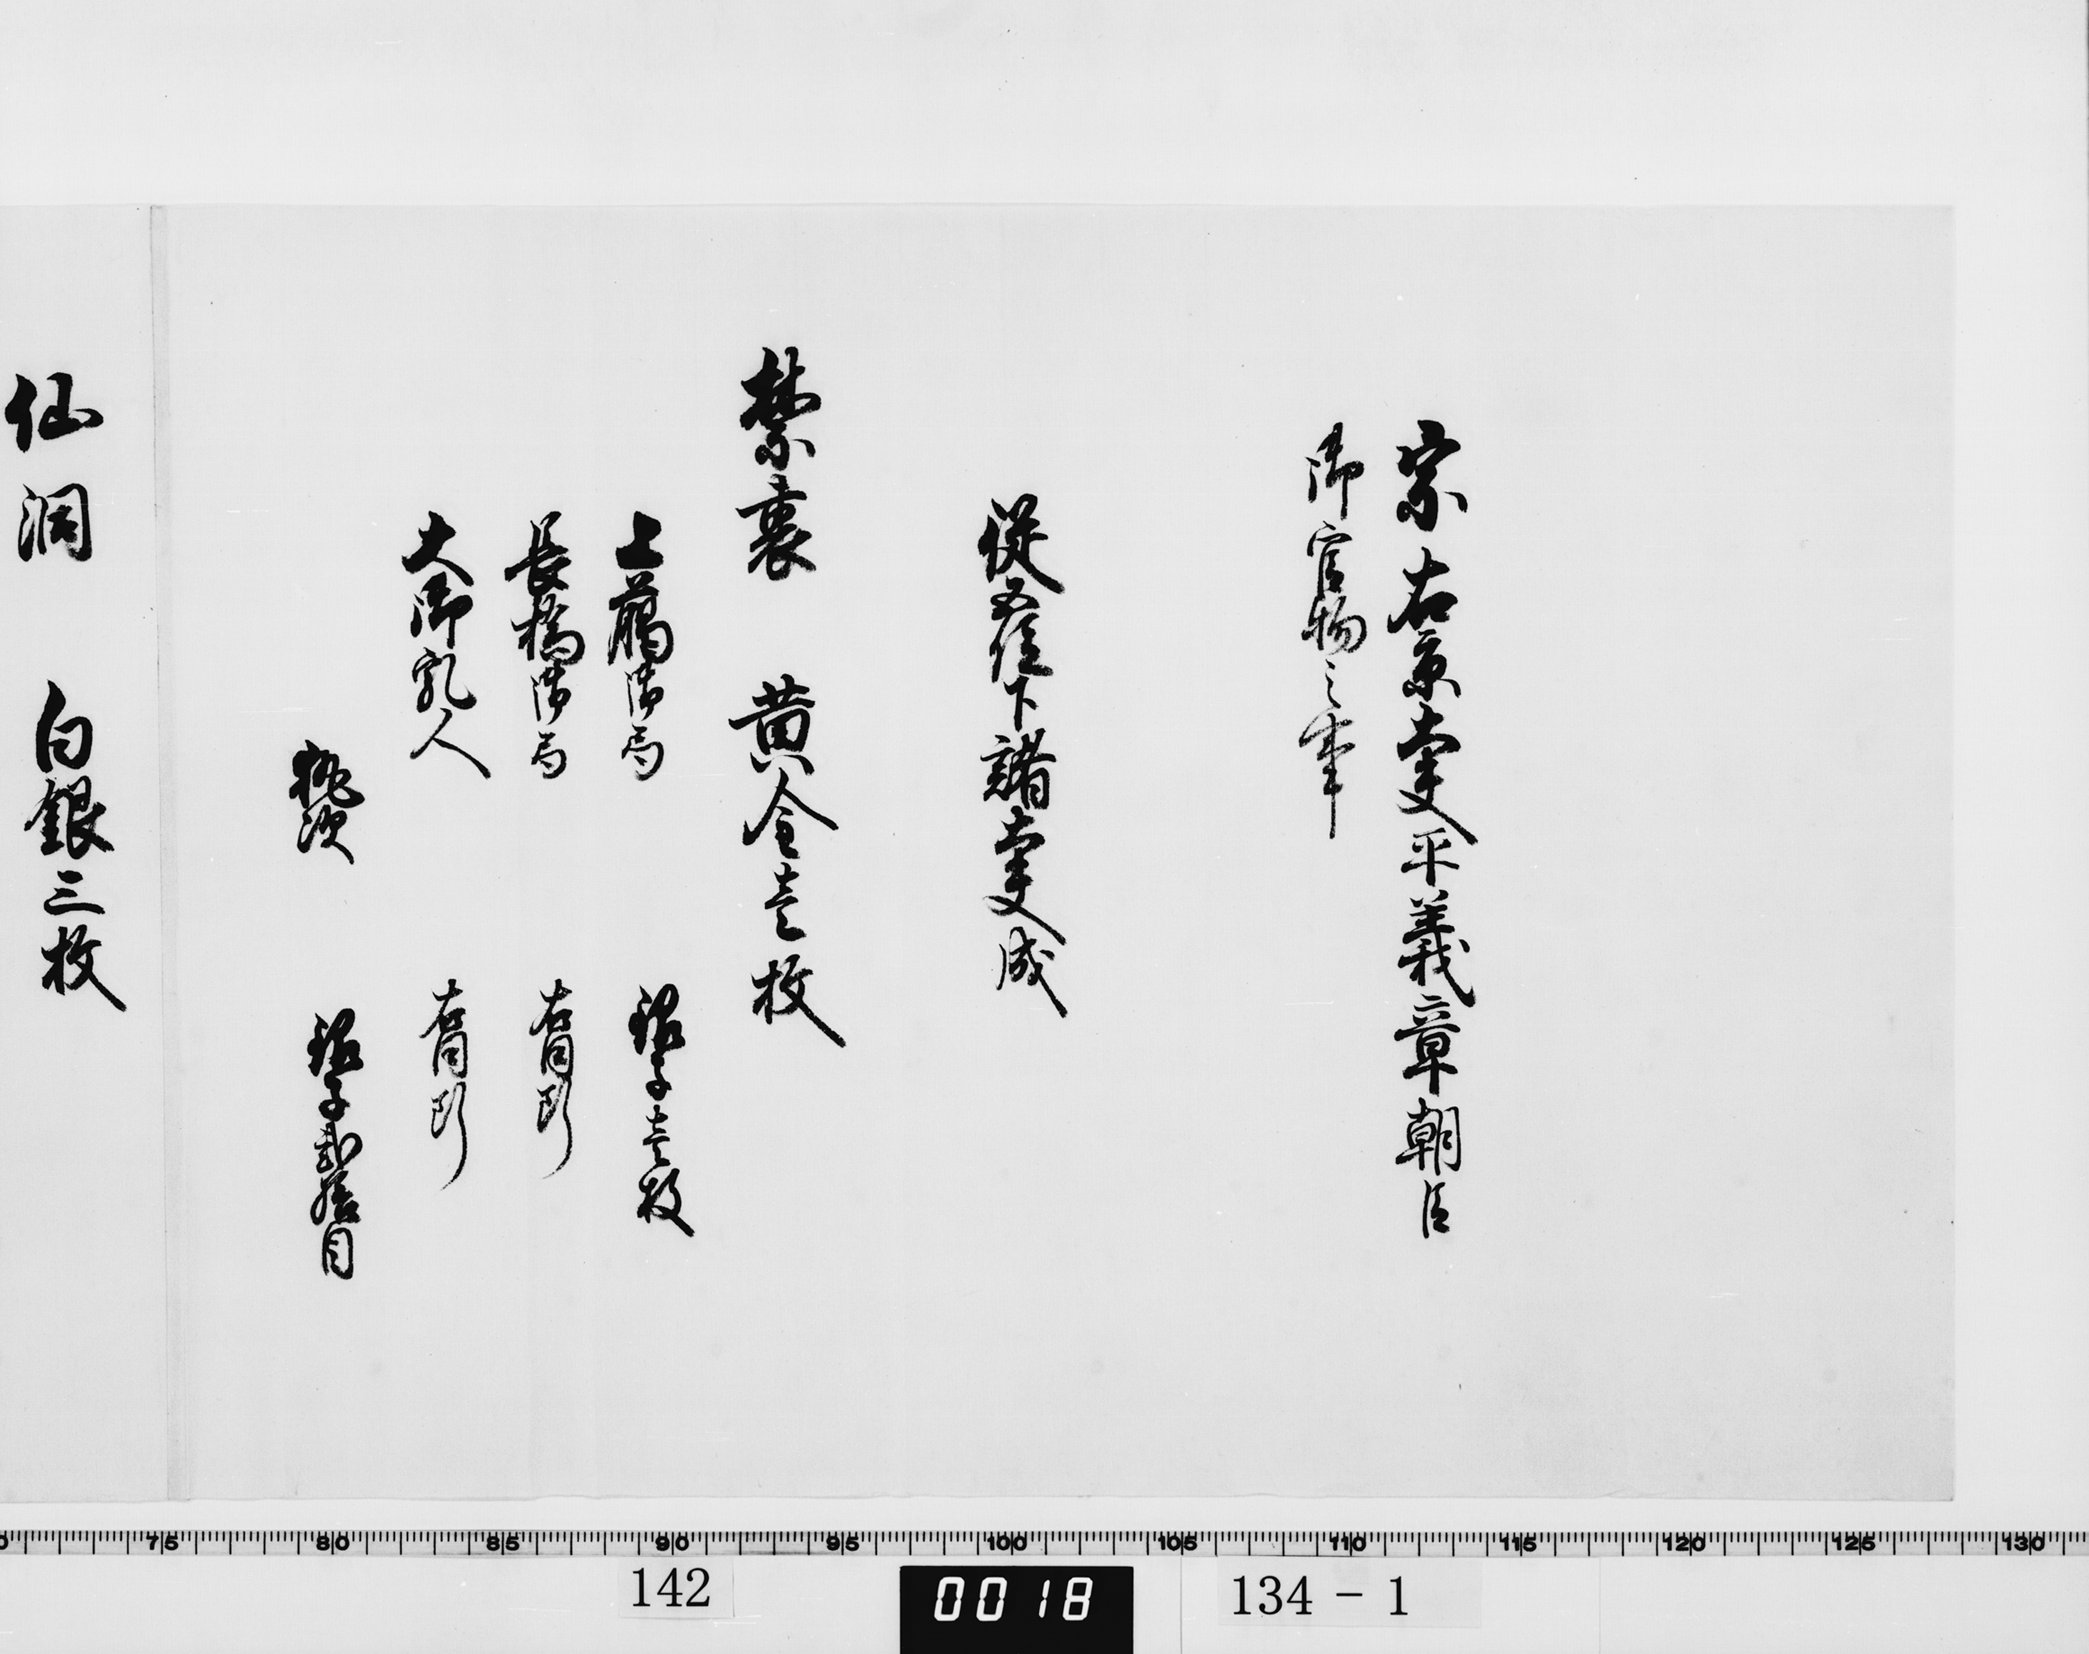 宗右京大夫平義章朝臣
御官物之事
従五位下諸大夫成
禁裏　黄金壱枚
上﨟御局　銀子壱枚
長橋御局　右同断
大御乳人　右同断
執次　銀子弐拾目
仙洞　白銀三枚
75 80 85 90 95 100 105 110 115 120 125 130
142 0018 134-1